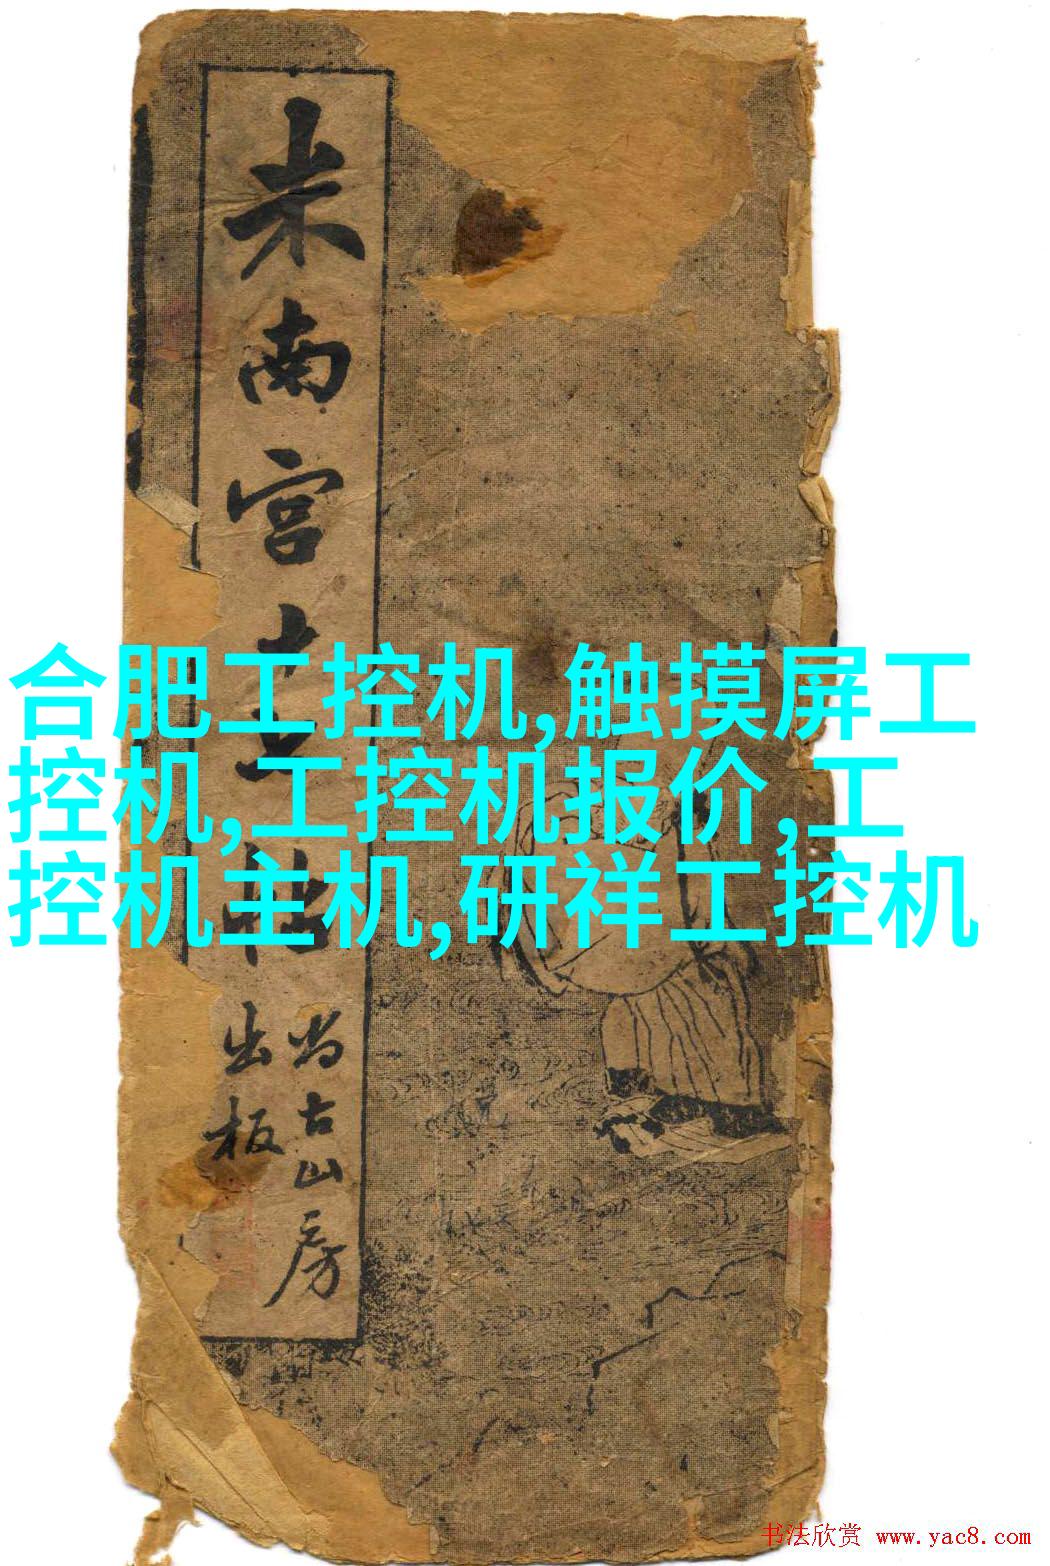 米南宫十七帖
尚古山房
出板
合肥工控机,触摸屏工
控机,工控机报价,工
控机主机,研祥工控机
书法欣赏 www.yac8.com